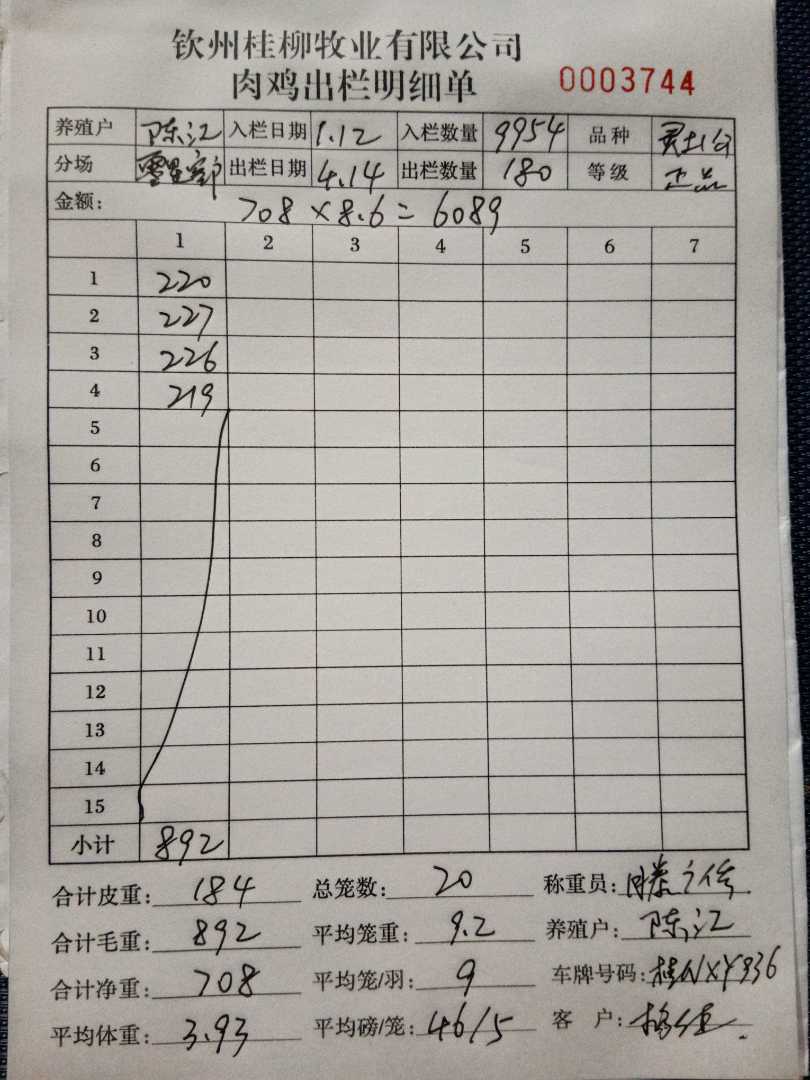 钦州桂柳牧业有限公司
肉鸡出栏明细单 0003744
养殖户 陈江 入栏日期 1.12 入栏数量 9954 品种
分场 出栏日期 4.14 出栏数量 180 等级 正品
金额: 708×8.6=6089
1 2 3 4 5 6 7
1 220
2 227
3 226
4 219
5
6
7
8
9
10
11
12
13
14
15
小计 892
合计皮重: 184 总笼数: 20 称重员:
合计毛重: 892 平均笼重: 9.2 养殖户: 陈江
合计净重: 708 平均笼/羽: 9 车牌号码: 桂NXY936
平均体重: 3.93 平均磅/笼: 46/5 客 户: